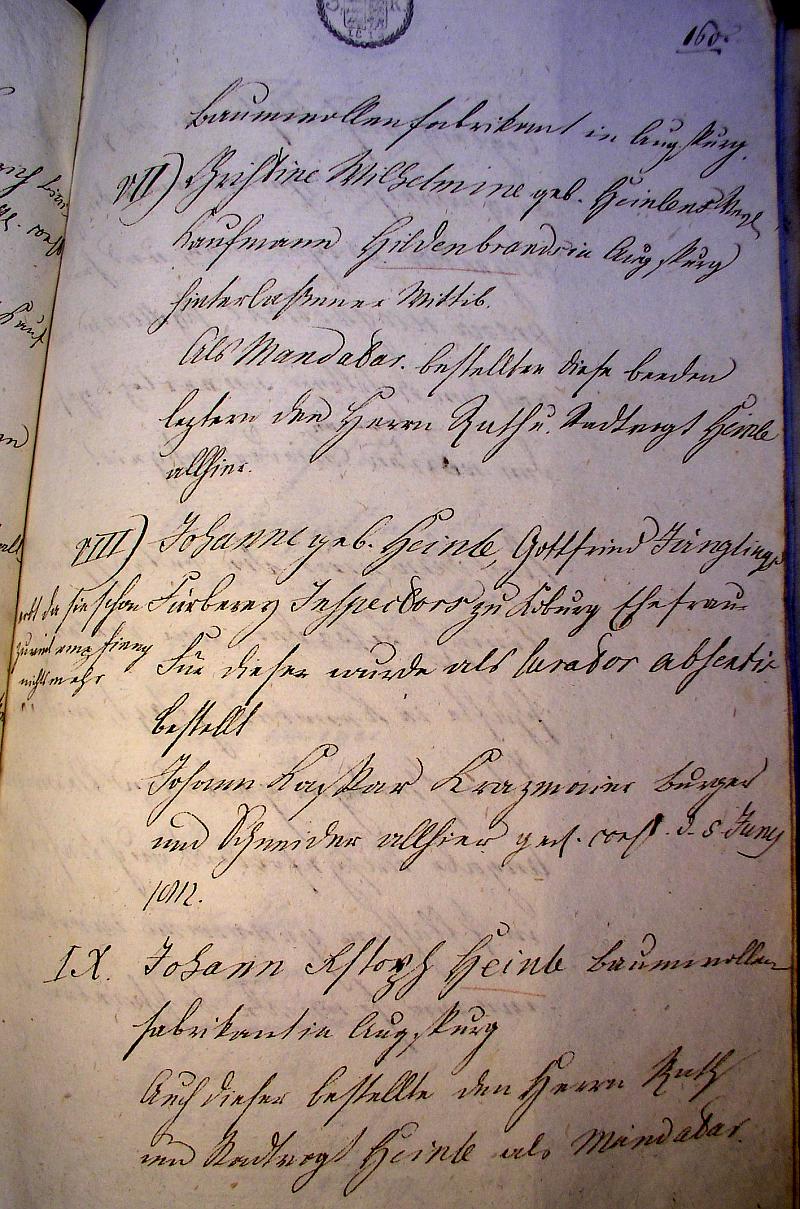 160.
Baumwollenfabrikant in Augspurg.
VII) Christine Wilhelmine geb. Heinlens
Kaufmann Hildenbrands in Augspurg
hinterlaßener Wittib.
Als Mandatar. bestellten diese beeden
leztern den Herrn Rath u. Stadtvogt Heinle
allhier.
VIII) Johanne geb. Heinle, Gottfried Jünglings
Färberey Inspectors zu Coburg Ehefrau
Für dieser wurde als Curator absentis
bestellt
Johann Kaspar Krazmaier burger
und Schneider allhier d. 5 Juny
1812.
erbt da sie schon
zuviel empfieng
nichts mehr
IX. Johann Xstoph Heinle Baumwollen
fabrikant in Augspurg
Auch dieser bestellte den Herrn Rath
und Stadtvogt Heinle als Mandatar.